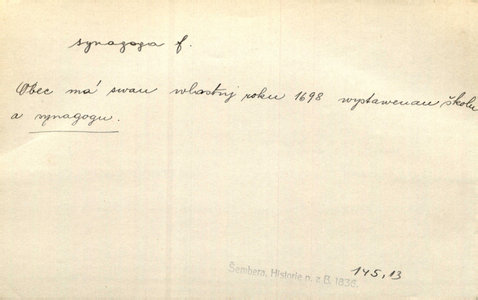 synagoga f.
Obec má swau wlastnj roku 1698 wystawenau školu
a synagogu.
Šembera, Historie p. z B. 1836.
145,13